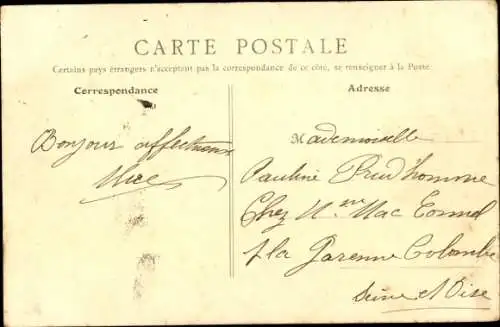 CARTE POSTALE
Certains pays étrangers n'acceptent pas la correspondance de ce côté, se renseigner à la Poste
Correspondance
Adresse
Bonjour affectueux
Mademoiselle
Pauline Prud'homme
Chez Mme Mac
La Garenne Colombe
Seine et Oise